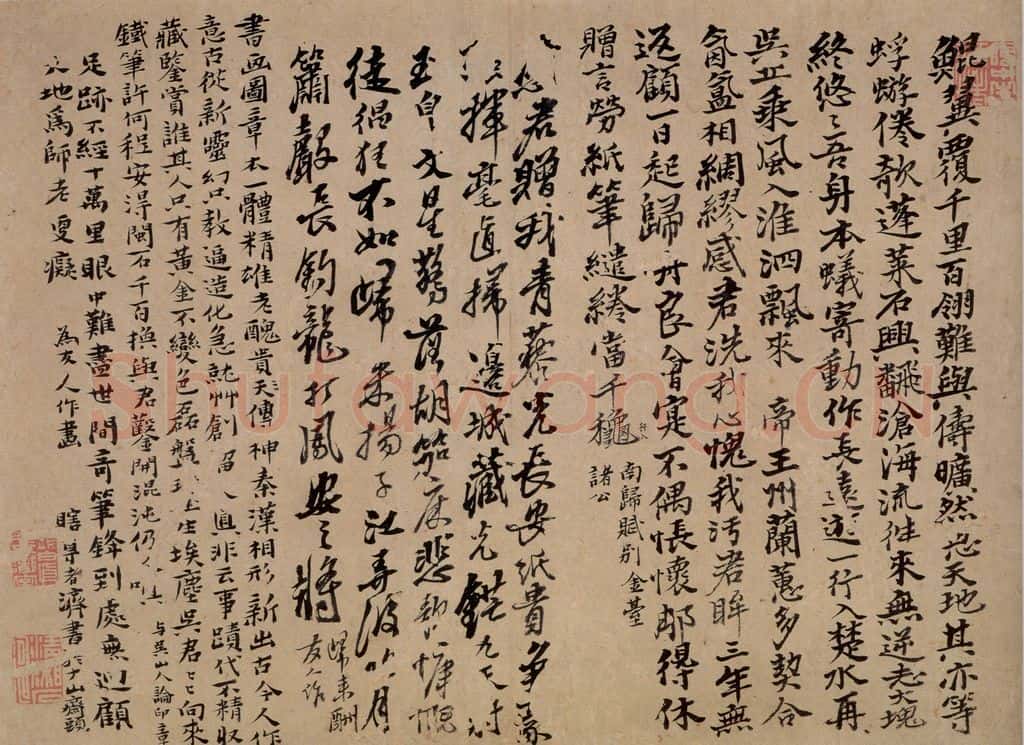 鯤翼覆千里百翎難與儔曠然忘天地其亦等
蜉蝣倦欹蓬萊石興翻滄海流往來無逆志大塊
終悠〻吾身本蟻寄動作長遠遊一行入楚水再
吳丘乘風入淮泗飄來 帝王州蘭蕙多契合
氤氳相綢繆感君洗我心愧我污君眸三年無
返顧一日起歸舟良會寔不偶悵懷那得休
贈言勞紙筆繾綣當千穐
南歸賦別金臺
諸公
君贈我青藜光長安紙貴爭豪
揮毫直掃邊城藏光鋩九天封
玉皇文星驚落胡笳床悲歌慷慨
徒猖狂不如歸來揚子江弄波吟月
嚴長釣龍打鳳安〻將
歸來酬
友人作
書画圖章本一體精雄老醜貴傳神秦漢相形新出古今人作
意古從新靈幻只教逼造化急就艸創留人真非云事蹟代不精收
藏鑒賞誰其人只有黃金不變色磊盤生埃塵吳君〻向來
鐵筆許何程安得閩石千百換與君鑿開混沌仍
與吳山人論印章
足跡不經十萬里眼中難盡世間奇筆鋒到處無迴顧
天地爲師老更癡 為友人作畫
瞎尊者濟書於大山齋頭